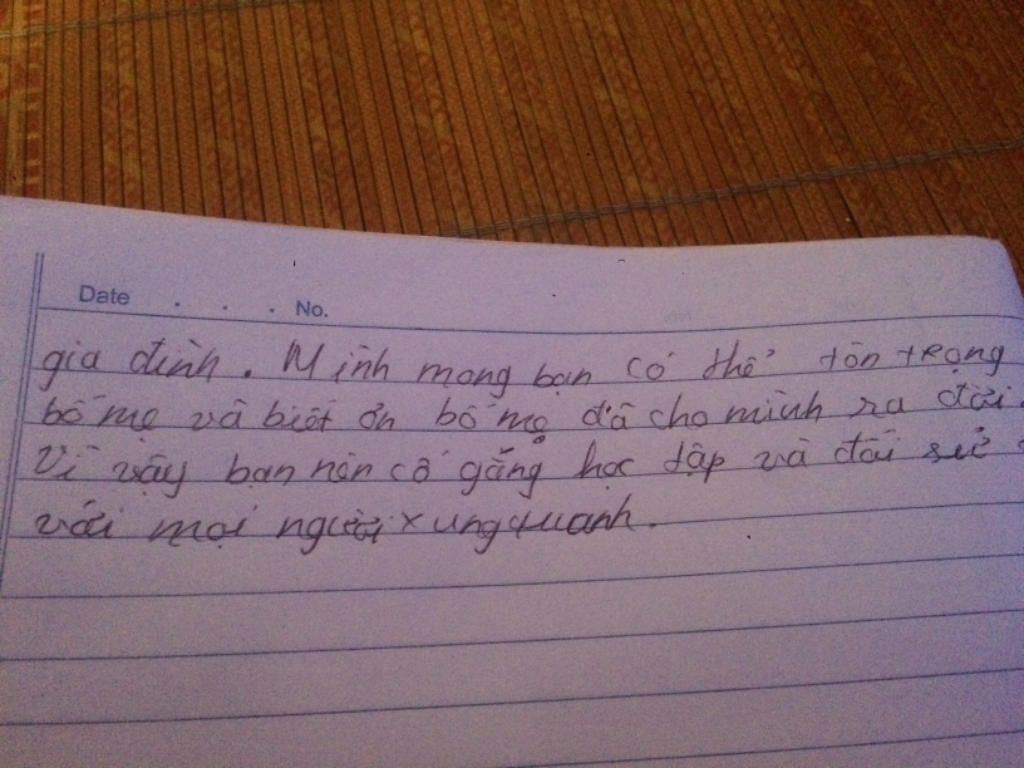 Date . . . No.
gia đình. Mình mong bạn có thể tôn trọng
bố mẹ và biết ơn bố mẹ đã cho mình ra đời.
Vì vậy bạn nên cố gắng học tập và đối sử
với mọi người xung quanh.